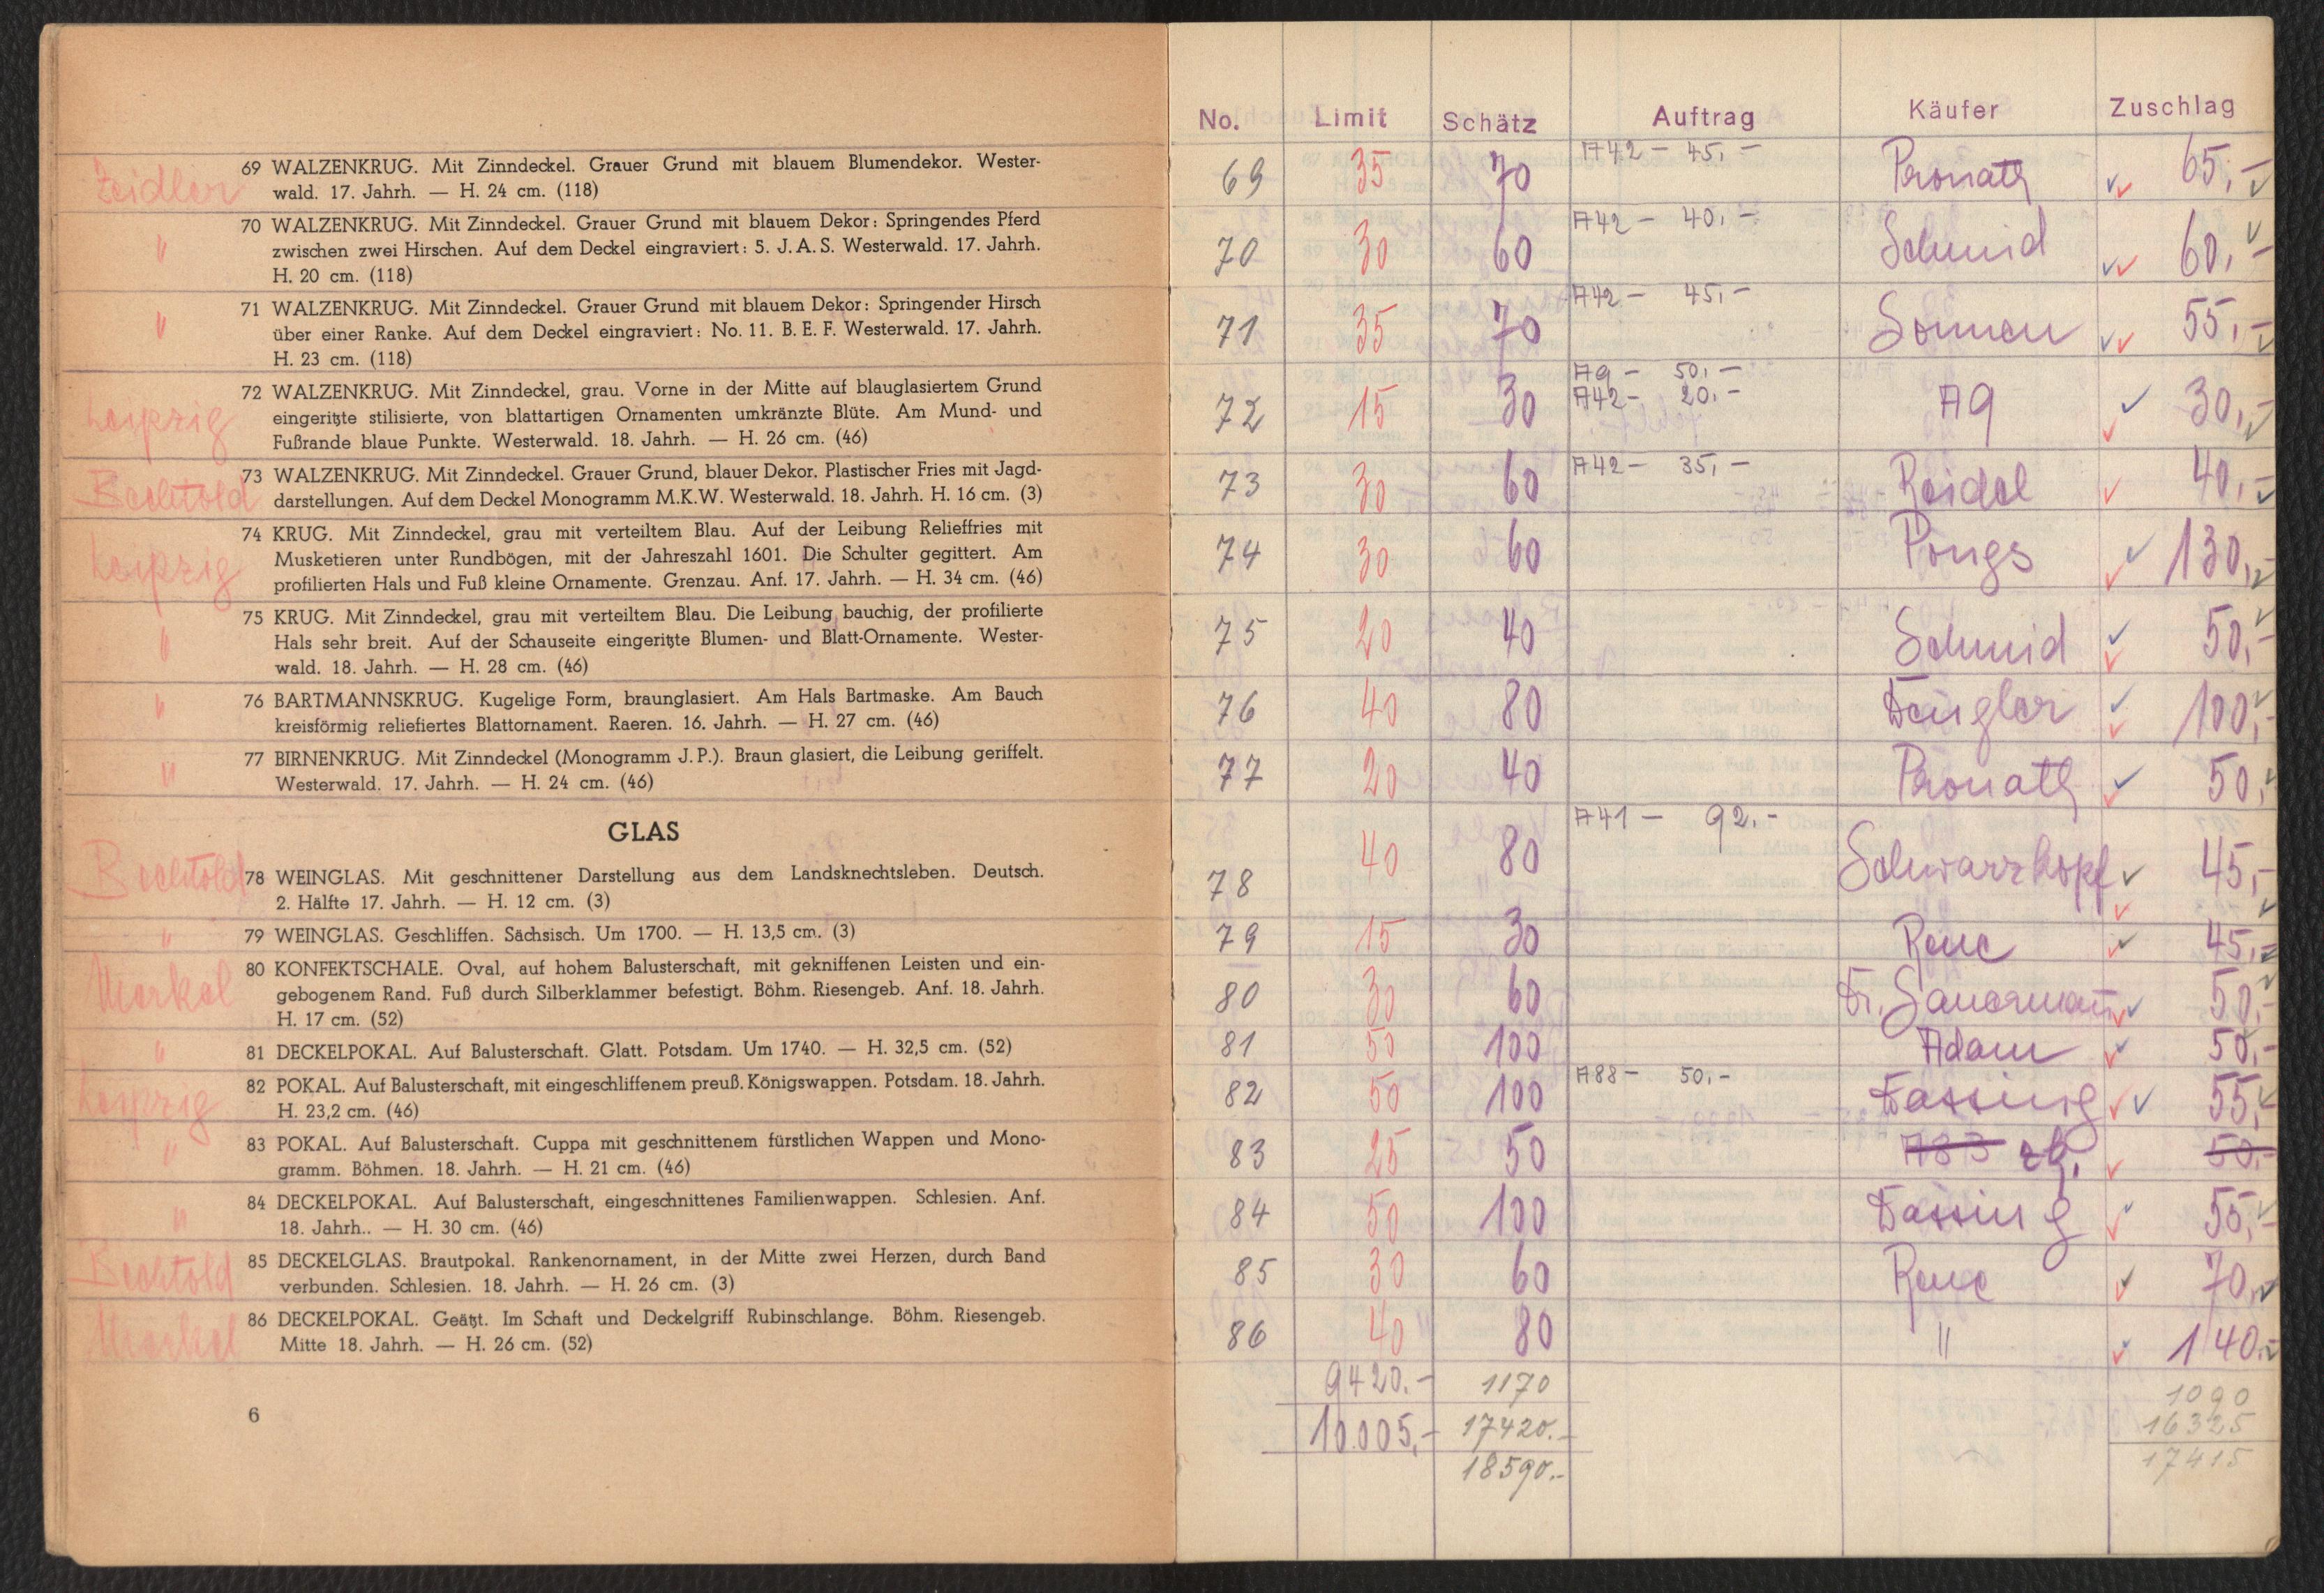 Zeidler
69 WALZENKRUG. Mit Zinndeckel. Grauer Grund mit blauem Blumendekor. Wester-
wald. 17. Jahrh. — H. 24 cm. (118)
"
70 WALZENKRUG. Mit Zinndeckel. Grauer Grund mit blauem Dekor: Springendes Pferd
zwischen zwei Hirschen. Auf dem Deckel eingraviert: 5. J. A. S. Westerwald. 17. Jahrh.
H. 20 cm. (118)
"
71 WALZENKRUG. Mit Zinndeckel. Grauer Grund mit blauem Dekor: Springender Hirsch
über einer Ranke. Auf dem Deckel eingraviert: No. 11. B. E. F. Westerwald. 17. Jahrh.
H. 23 cm. (118)
Leipzig
72 WALZENKRUG. Mit Zinndeckel, grau. Vorne in der Mitte auf blauglasiertem Grund
eingeritzte stilisierte, von blattartigen Ornamenten umkränzte Blüte. Am Mund- und
Fußrande blaue Punkte. Westerwald. 18. Jahrh. — H. 26 cm. (46)
Bechtold
73 WALZENKRUG. Mit Zinndeckel. Grauer Grund, blauer Dekor. Plastischer Fries mit Jagd-
darstellungen. Auf dem Deckel Monogramm M.K.W. Westerwald. 18. Jahrh. H. 16 cm. (3)
Leipzig
74 KRUG. Mit Zinndeckel, grau mit verteiltem Blau. Auf der Leibung Relieffries mit
Musketieren unter Rundbögen, mit der Jahreszahl 1601. Die Schulter gegittert. Am
profilierten Hals und Fuß kleine Ornamente. Grenzau. Anf. 17. Jahrh. — H. 34 cm. (46)
"
75 KRUG. Mit Zinndeckel, grau mit verteiltem Blau. Die Leibung bauchig, der profilierte
Hals sehr breit. Auf der Schauseite eingeritzte Blumen- und Blatt-Ornamente. Wester-
wald. 18. Jahrh. — H. 28 cm. (46)
"
76 BARTMANNSKRUG. Kugelige Form, braunglasiert. Am Hals Bartmaske. Am Bauch
kreisförmig reliefiertes Blattornament. Raeren. 16. Jahrh. — H. 27 cm. (46)
"
77 BIRNENKRUG. Mit Zinndeckel (Monogramm J. P.). Braun glasiert, die Leibung geriffelt.
Westerwald. 17. Jahrh. — H. 24 cm. (46)
GLAS
Bechtold
78 WEINGLAS. Mit geschnittener Darstellung aus dem Landsknechtsleben. Deutsch.
2. Hälfte 17. Jahrh. — H. 12 cm. (3)
"
79 WEINGLAS. Geschliffen. Sächsisch. Um 1700. — H. 13,5 cm. (3)
Merkel
80 KONFEKTSCHALE. Oval, auf hohem Balusterschaft, mit gekniffenen Leisten und ein-
gebogenem Rand. Fuß durch Silberklammer befestigt. Böhm. Riesengeb. Anf. 18. Jahrh.
H. 17 cm. (52)
"
81 DECKELPOKAL. Auf Balusterschaft. Glatt. Potsdam. Um 1740. — H. 32,5 cm. (52)
Leipzig
82 POKAL. Auf Balusterschaft, mit eingeschliffenem preuß. Königswappen. Potsdam. 18. Jahrh.
H. 23,2 cm. (46)
"
83 POKAL. Auf Balusterschaft. Cuppa mit geschnittenem fürstlichen Wappen und Mono-
gramm. Böhmen. 18. Jahrh. — H. 21 cm. (46)
"
84 DECKELPOKAL. Auf Balusterschaft, eingeschnittenes Familienwappen. Schlesien. Anf.
18. Jahrh.. — H. 30 cm. (46)
Bechtold
85 DECKELGLAS. Brautpokal. Rankenornament, in der Mitte zwei Herzen, durch Band
verbunden. Schlesien. 18. Jahrh. — H. 26 cm. (3)
Merkel
86 DECKELPOKAL. Geätzt. Im Schaft und Deckelgriff Rubinschlange. Böhm. Riesengeb.
Mitte 18. Jahrh. — H. 26 cm. (52)
6
No. Limit Schätz Auftrag Käufer Zuschlag
69 35 70 A42 – 45,– Peronath 65,–
70 30 60 A42 – 40,– Schmid 60,–
71 35 70 A42 – 45,– Sonnen 55,–
A9 – 50,–
72 15 30 A42 – 20,– A9 30,–
73 30 60 A42 – 35,– Reidel 40,–
74 30 60 Pongs 130,–
75 20 40 Schmid 50,–
76 40 80 Dengler 100,–
77 20 40 Peronath 50,–
78 40 80 A41 – 92,– Schwarzkopf 45,–
79 15 30 Renc 45,–
80 30 60 Dr. Sauermann 50,–
81 50 100 Adam 50,–
82 50 100 A88 – 50,– Fassing 55,–
83 25 50 zg. 50,–
84 50 100 Fassing 55,–
85 30 60 Renc 70,–
86 40 80 " 140,–
9420.– 1170 1090
10.005,– 17420.– 16325
18590.– 17415